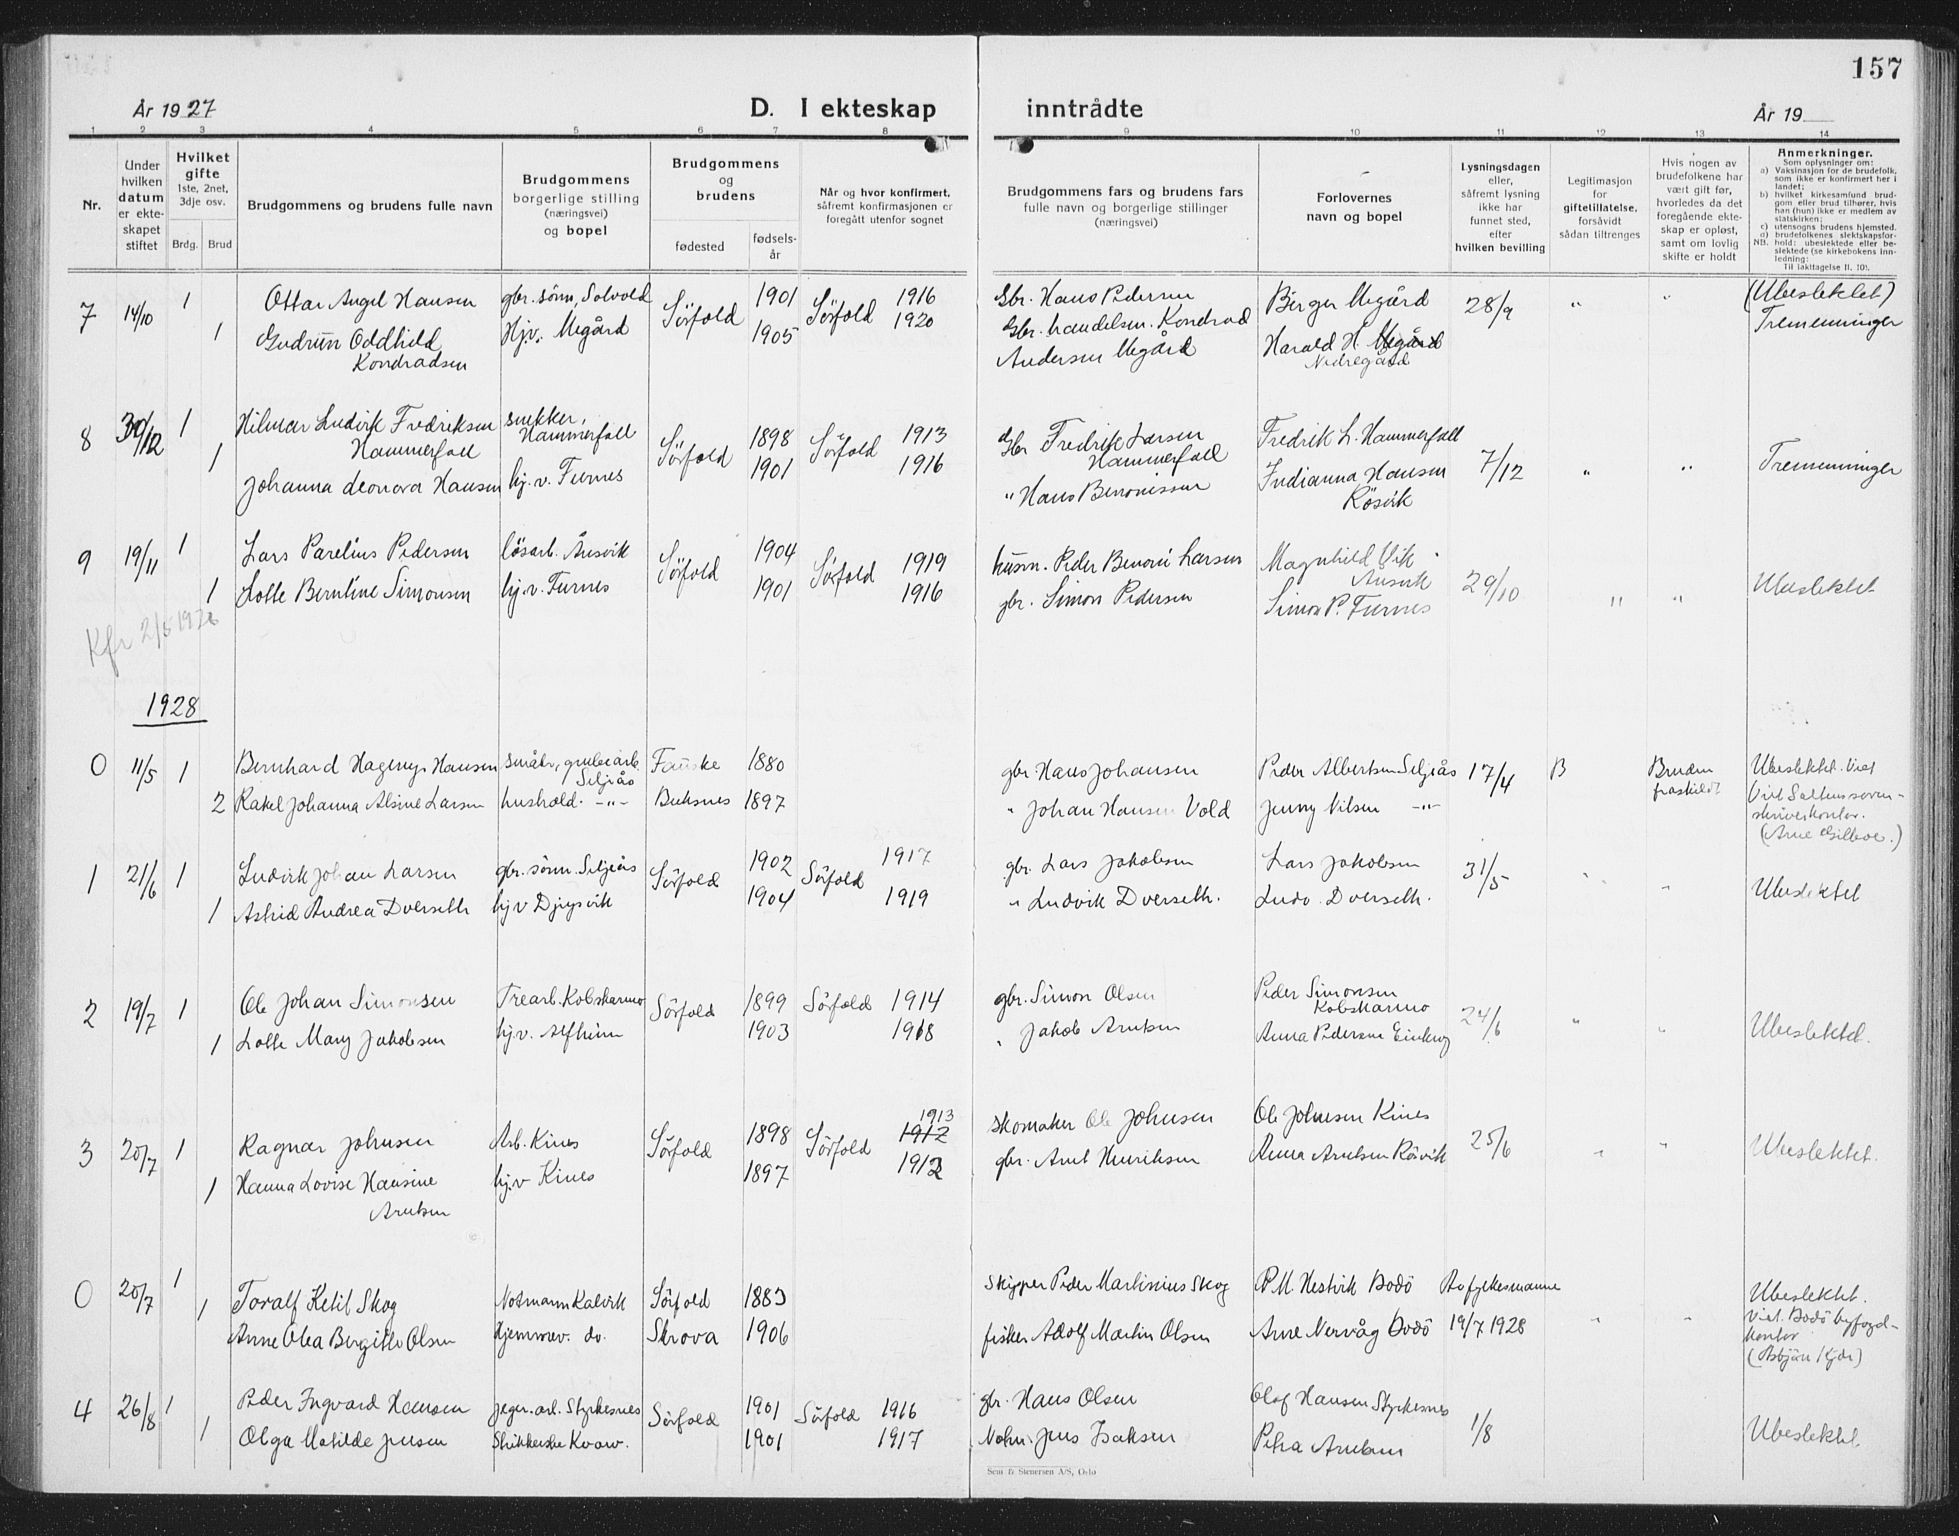 157
År 1927
D. I ekteskap inntrådte
År 19
1 2 3 4 5 6 7 8 9 10 11 12 13 14
Nr.
Under hvilken datum er ekteskapet stiftet
Hvilket gifte 1ste, 2net, 3dje osv.
Brdg. Brud
Brudgommens og brudens fulle navn
Brudgommens borgerlige stilling (næringsvei) og bopel
Brudgommens og brudens
fødested
fødselsår
Når og hvor konfirmert, såfremt konfirmasjonen er foregått utenfor sognet
Brudgommens fars og brudens fars fulle navn og borgerlige stillinger (næringsvei)
Forlovernes navn og bopel
Lysningsdagen eller, såfremt lysning ikke har funnet sted, efter hvilken bevilling
Legitimasjon for giftetillatelse, forsåvidt sådan tiltrenges
Hvis nogen av brudefolkene har vært gift før, hvorledes da det foregående ekteskap er opløst, samt om lovlig skifte er holdt
Anmerkninger.
Som oplysninger om:
a) Vaksinasjon for de brudefolk, som ikke er konfirmert her i landet;
b) hvilket kirkesamfund brudgom eller brud tilhører, hvis han (hun) ikke er medlem av statskirken;
c) utensogns brudens hjemsted.
d) brudefolkenes slektskapsforhold: ubeslektede eller beslektede (se kirkebokens innledning:
NB.
Til iakttagelse II, 10).
7 14/10 1 Ottar Angel Hansen gbr. sønn, Solvold Sørfold 1901 Sørfold 1916 Gbr. Hans Pedersen Birger Megård 28/9 " " (Ubeslektet)
1 Gudrun Oddhild Hj.v. Megård 1905 1920 Gbr. handelsm. Kondrad Harald H. Megård Tremenninger
Kondradsen Andersen Megård Nedregård
8 30/12 1 Hilmar Ludvik Fredriksen snekker, Sørfold 1898 Sørfold 1913 Gbr Fredrik Larsen Fredrik L. Hammerfall 7/12 " " Tremenninger
Hammerfall Hammerfall Hammerfall
1 Johanna Leonora Hansen hj.v. Furnes 1901 1916 " Hans Benonissen Indianna Hansen
Røsvik
9 19/11 1 Lars Parelius Pedersen løsarb. Ånsvik Sørfold 1904 Sørfold 1919 husm. Peder Benoni Larsen Magnhild Vik 29/10 " " Ubeslektet
Ånsvik
1 Lotte Berntine Simonsen hj.v. Furnes 1901 1916 gbr. Simon Pedersen Simon P. Furnes
Kfr 2/5 1928
1928
0 11/5 1 Bernhard Hagerup Hansen småbr, grubearb. Fauske 1880 gbr Hans Johansen Peder Albertsen Seljeås 17/4 B Bruden Ubeslektet. Viet
Seljeås fraskildt
2 Rakel Johanna Alsine Larsen hushold. -"- Buksnes 1897 " Johan Hansen Vold Jenny Nilsen -"- Ved Saltens sorenskriverkontor.
1 21/6 1 Ludvik Johan Larsen gbr. sønn. Seljeås Sørfold 1902 Sørfold 1917 gbr. Lars Jakobsen Lars Jakobsen 31/5 " " Ubeslektet
1 Astrid Andrea Dverseth hj.v Djupvik 1904 1919 " Ludvik Dverseth. Ludv. Dverseth.
2 19/7 1 Ole Johan Simonsen Trearb. Kobskarmo Sørfold 1899 Sørfold 1914 gbr. Simon Olsen Peder Simonsen 24/6 " " Ubeslektet.
Kobskarmo
1 Lotte Mary Jakobsen hj.v. Alfheim 1903 1918 " Jakob Arntsen Anna Pedersen
3 20/7 1 Ragnar Johnsen Arb. Kines Sørfold 1898 Sørfold 1913 1912 skomaker Ole Johnsen Ole Johnsen Kines 25/6 " " Ubeslektet.
1 Hanna Lovise Hansine hj.v Kines 1897 1912 gbr. Arnt Henriksen Anna Arntsen Røsvik
Arntsen
0 20/7 1 Toralf Ketil Skog Notmann Kalvik Sørfold 1883 Skipper Peder Martinius Skog P.M. Hestvik Bodø Av fylkesmannen " " Ubeslektet.
1 Anne Olea Birgitte Olsen Hjemmev. do. Skrova 1906 fisker Adolf Martin Olsen Arne Nervåg Bodø 19/7 1928 Viet. Bodø byfogdkontor
4 26/8 1 Peder Ingvard Hansen Styrkesnes Sørfold 1901 Sørfold 1916 gbr. Hans Olsen Olaf Hansen Styrkesnes 1/8 Ubeslektet
1 Olga Matilde Jensen Kvarv. 1901 1917 Jens Isaksen Petra Arntsen
Sem & Stenersen A/S, Oslo